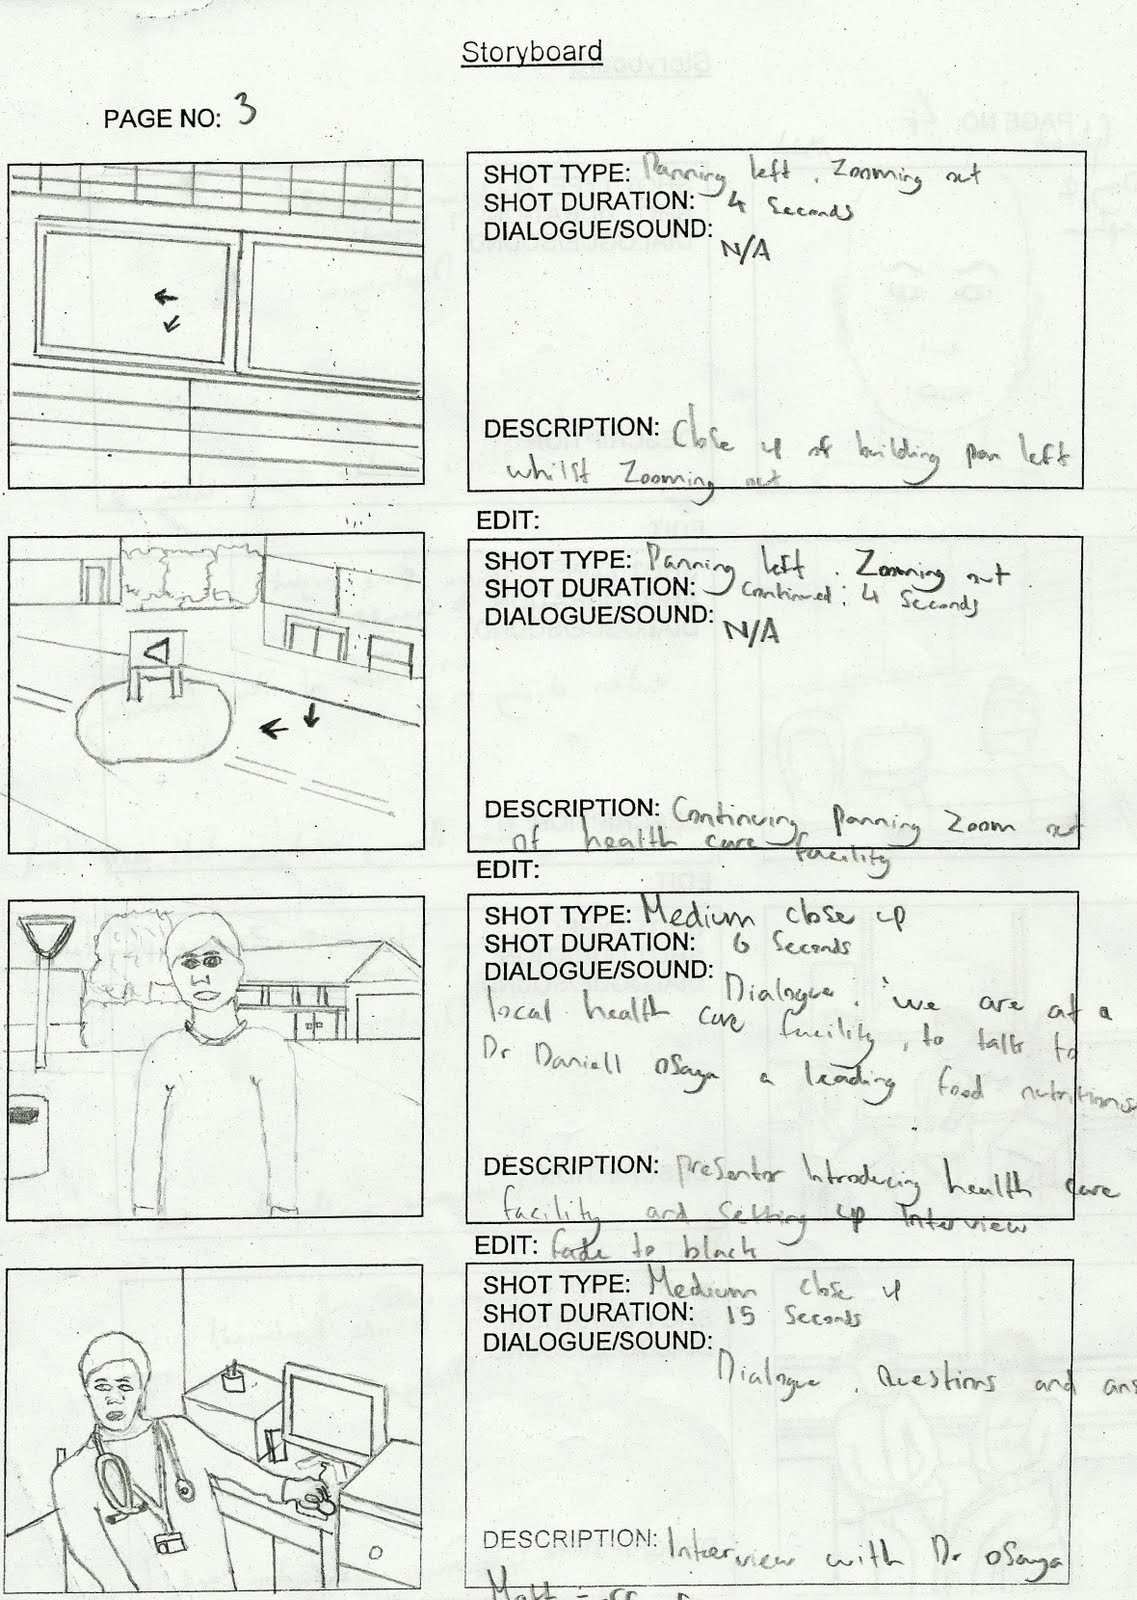 Storyboard
PAGE NO: 3
SHOT TYPE: Panning left. Zooming out
SHOT DURATION: 4 Seconds
DIALOGUE/SOUND: N/A
DESCRIPTION: Close up of building pan left
whilst Zooming out
EDIT:
SHOT TYPE: Panning left. Zooming out.
SHOT DURATION: Continued: 4 Seconds
DIALOGUE/SOUND: N/A
DESCRIPTION: Continuing panning Zoom out
of health care facility
EDIT:
SHOT TYPE: Medium close up
SHOT DURATION: 6 Seconds
DIALOGUE/SOUND: Dialogue. 'we are at a
local health care facility, to talk to
Dr Daniell oSaya a leading food
DESCRIPTION: presentor Introducing health care
facility and setting up Interview
EDIT: fade to black
SHOT TYPE: Medium close up
SHOT DURATION: 15 Seconds
DIALOGUE/SOUND:
Dialogue. Questions and
DESCRIPTION: Interview with Dr oSaya